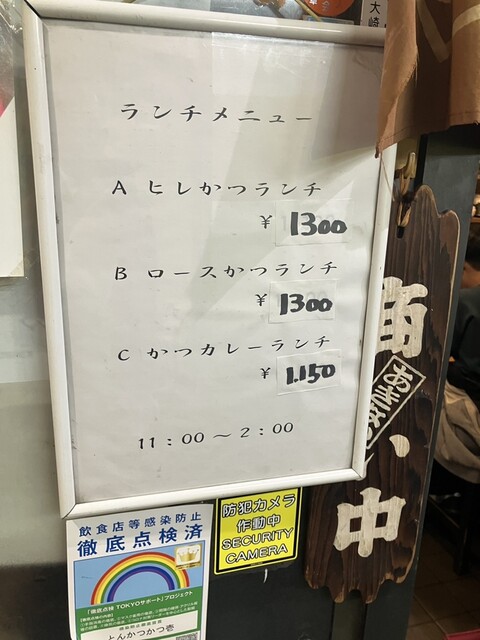 大崎
ランチメニュー
A ヒレかつランチ
¥ 1300
B ロースかつランチ
¥ 1300
C かつカレーランチ
¥ 1.150
11：00～2：00
商い中
飲食店等感染防止
徹底点検済
「徹底点検 TOKYOサポート」プロジェクト
とんかつかつ壱
防犯カメラ
作動中
SECURITY
CAMERA